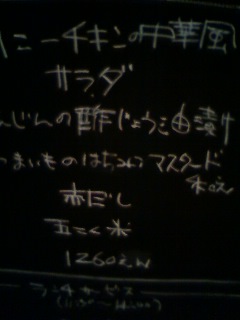 ニーチキンの中華風
サラダ
んじんの酢じょうゆ油漬け
つまいものはちみつマスタード
和え
赤だし
五こく米
1260えん
ランチサービス